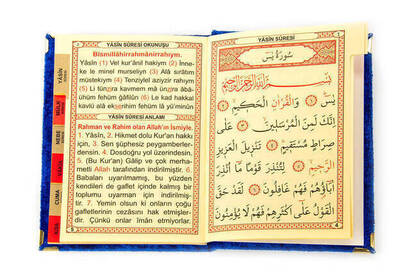 YÂSÎN SÛRESİ OKUNUŞU
Bismillâhirrahmânirrahıym.
Yâsîn (1) Vel kur'ânil hakiym (2) İnne-
ke le minel murseliyn (3) Alâ sırâtım
müstekıym (4) Tenziylel aziyzir rahiym
(5) Li tünzira kavmem mâ ünzira âbâ-
ühüm fehüm ğâfilûn (6) Le kad hakkal
kavlü alâ ekserihim fehüm lâ yü'minûn
YÂSÎN SÛRESİ ANLAMI
Rahman ve Rahim olan Allah'ın ismiyle.
1. Yâsîn, 2. Hikmet dolu Kur'an hakkı
için, 3. Sen şüphesiz peygamberler-
densin. 4. Dosdoğru yol üzerindesin.
5. (Bu Kur'an) Gâlip ve çok merha-
metli Allah tarafından indirilmiştir. 6.
Babaları uyarılmamış, bu yüzden
kendileri de gaflet içinde kalmış bir
toplumu uyarman için indirilmiş-
tir. 7. Yemin olsun ki onların çoğu
gafletlerinin cezasını hak etmişler-
dir. Çünkü onlar îman etmiyorlar.
5
YÂSÎN
MÜLK
NEBE
CUMA
YÂSÎN SÛRESİ
سُورَةُ يٰسٓ
بِسْمِ اللهِ الرَّحْمٰنِ الرَّحِيمِ
يٰسٓ ﴿١﴾ وَالْقُرْاٰنِ الْحَكِيمِ ﴿٢﴾
اِنَّكَ لَمِنَ الْمُرْسَلِينَ ﴿٣﴾ عَلٰى
صِرَاطٍ مُسْتَقِيمٍ ﴿٤﴾ تَنْزِيلَ الْعَزِيزِ
الرَّحِيمِ ﴿٥﴾ لِتُنْذِرَ قَوْمًا مَا اُنْذِرَ
اٰبَاؤُهُمْ فَهُمْ غَافِلُونَ ﴿٦﴾ لَقَدْ حَقَّ
الْقَوْلُ عَلٰى اَكْثَرِهِمْ فَهُمْ لَا يُؤْمِنُونَ
4